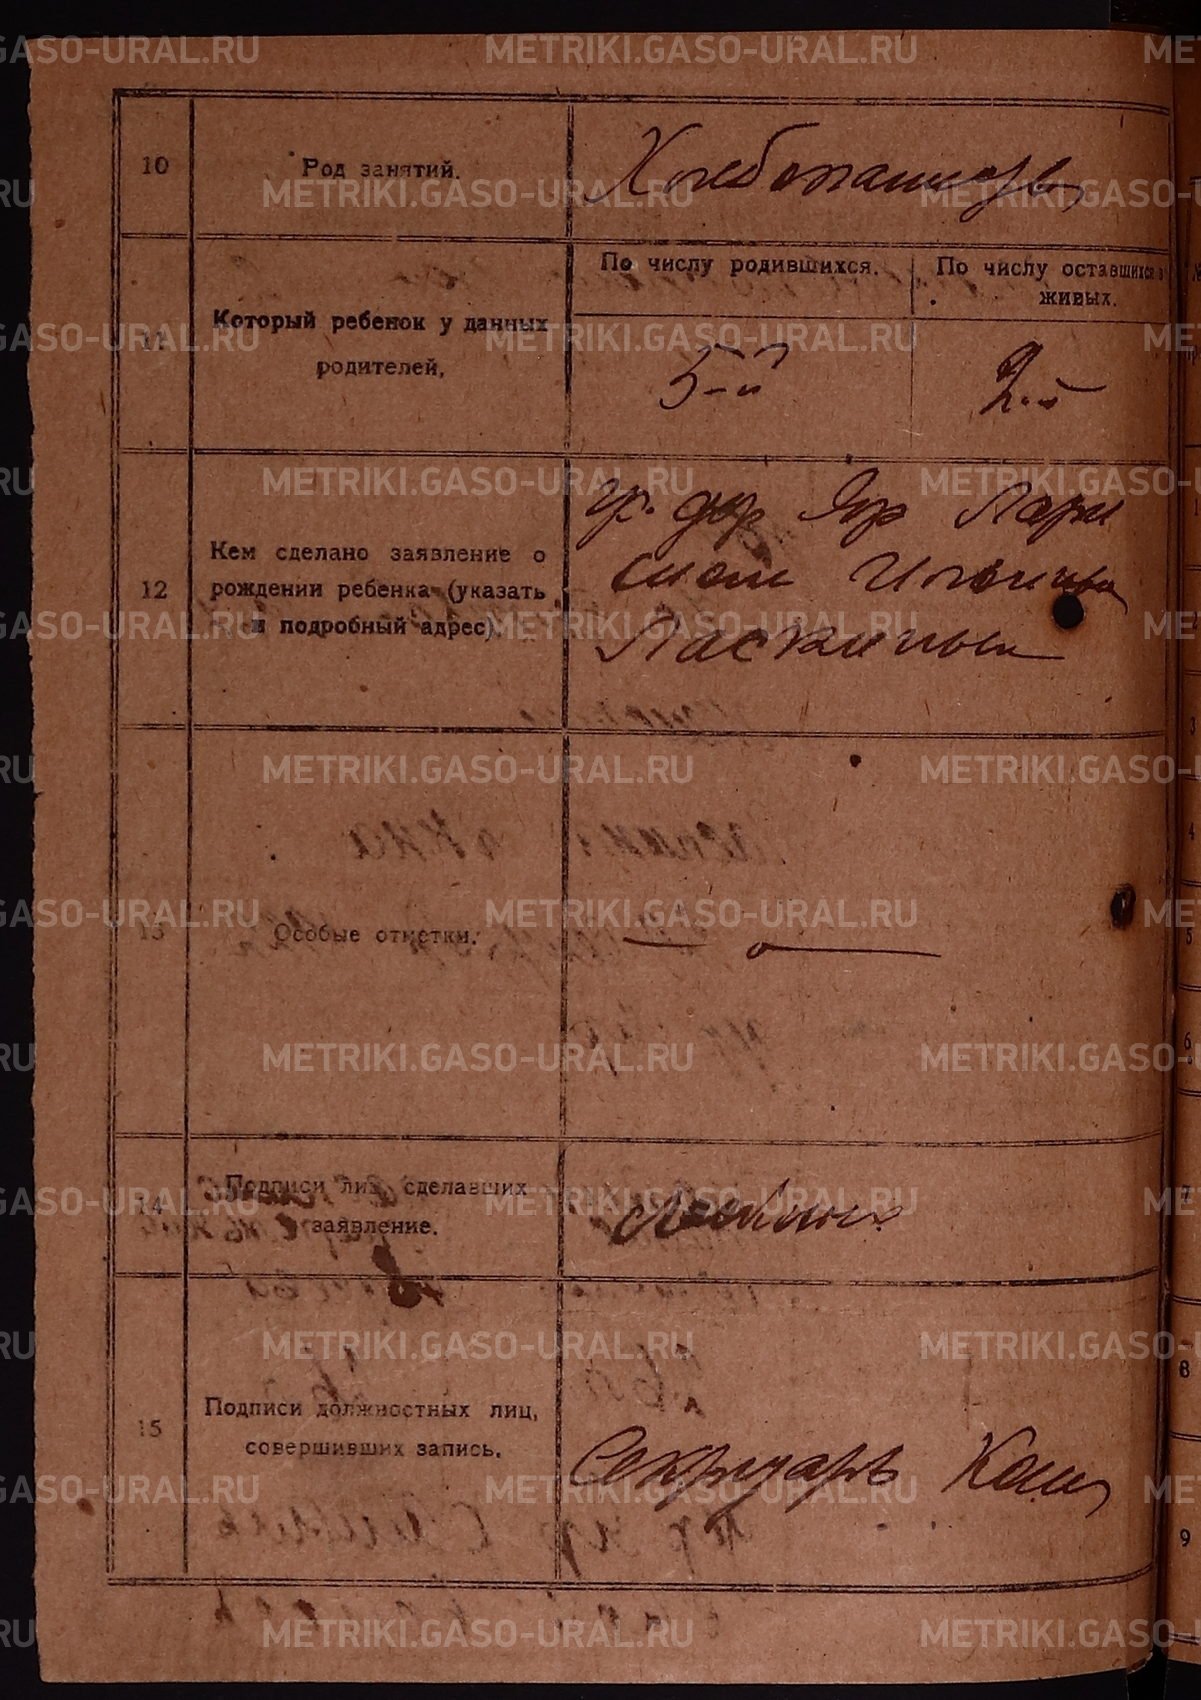 10
Род занятий.
Хлебопашество
11
Который ребенок у данных
родителей,
По числу родившихся.
По числу оставшихся в
живых.
5-й
2-й
12
Кем сделано заявление о
рождении ребенка (указать
и подробный адрес).
гр. дер Яр
Ласкиным
13
Особые отметки.
14
Подписи лиц, сделавших
заявление.
15
Подписи должностных лиц,
совершивших запись.
Секретарь
3
5
6
7
8
9
METRIKI.GASO-URAL.RU